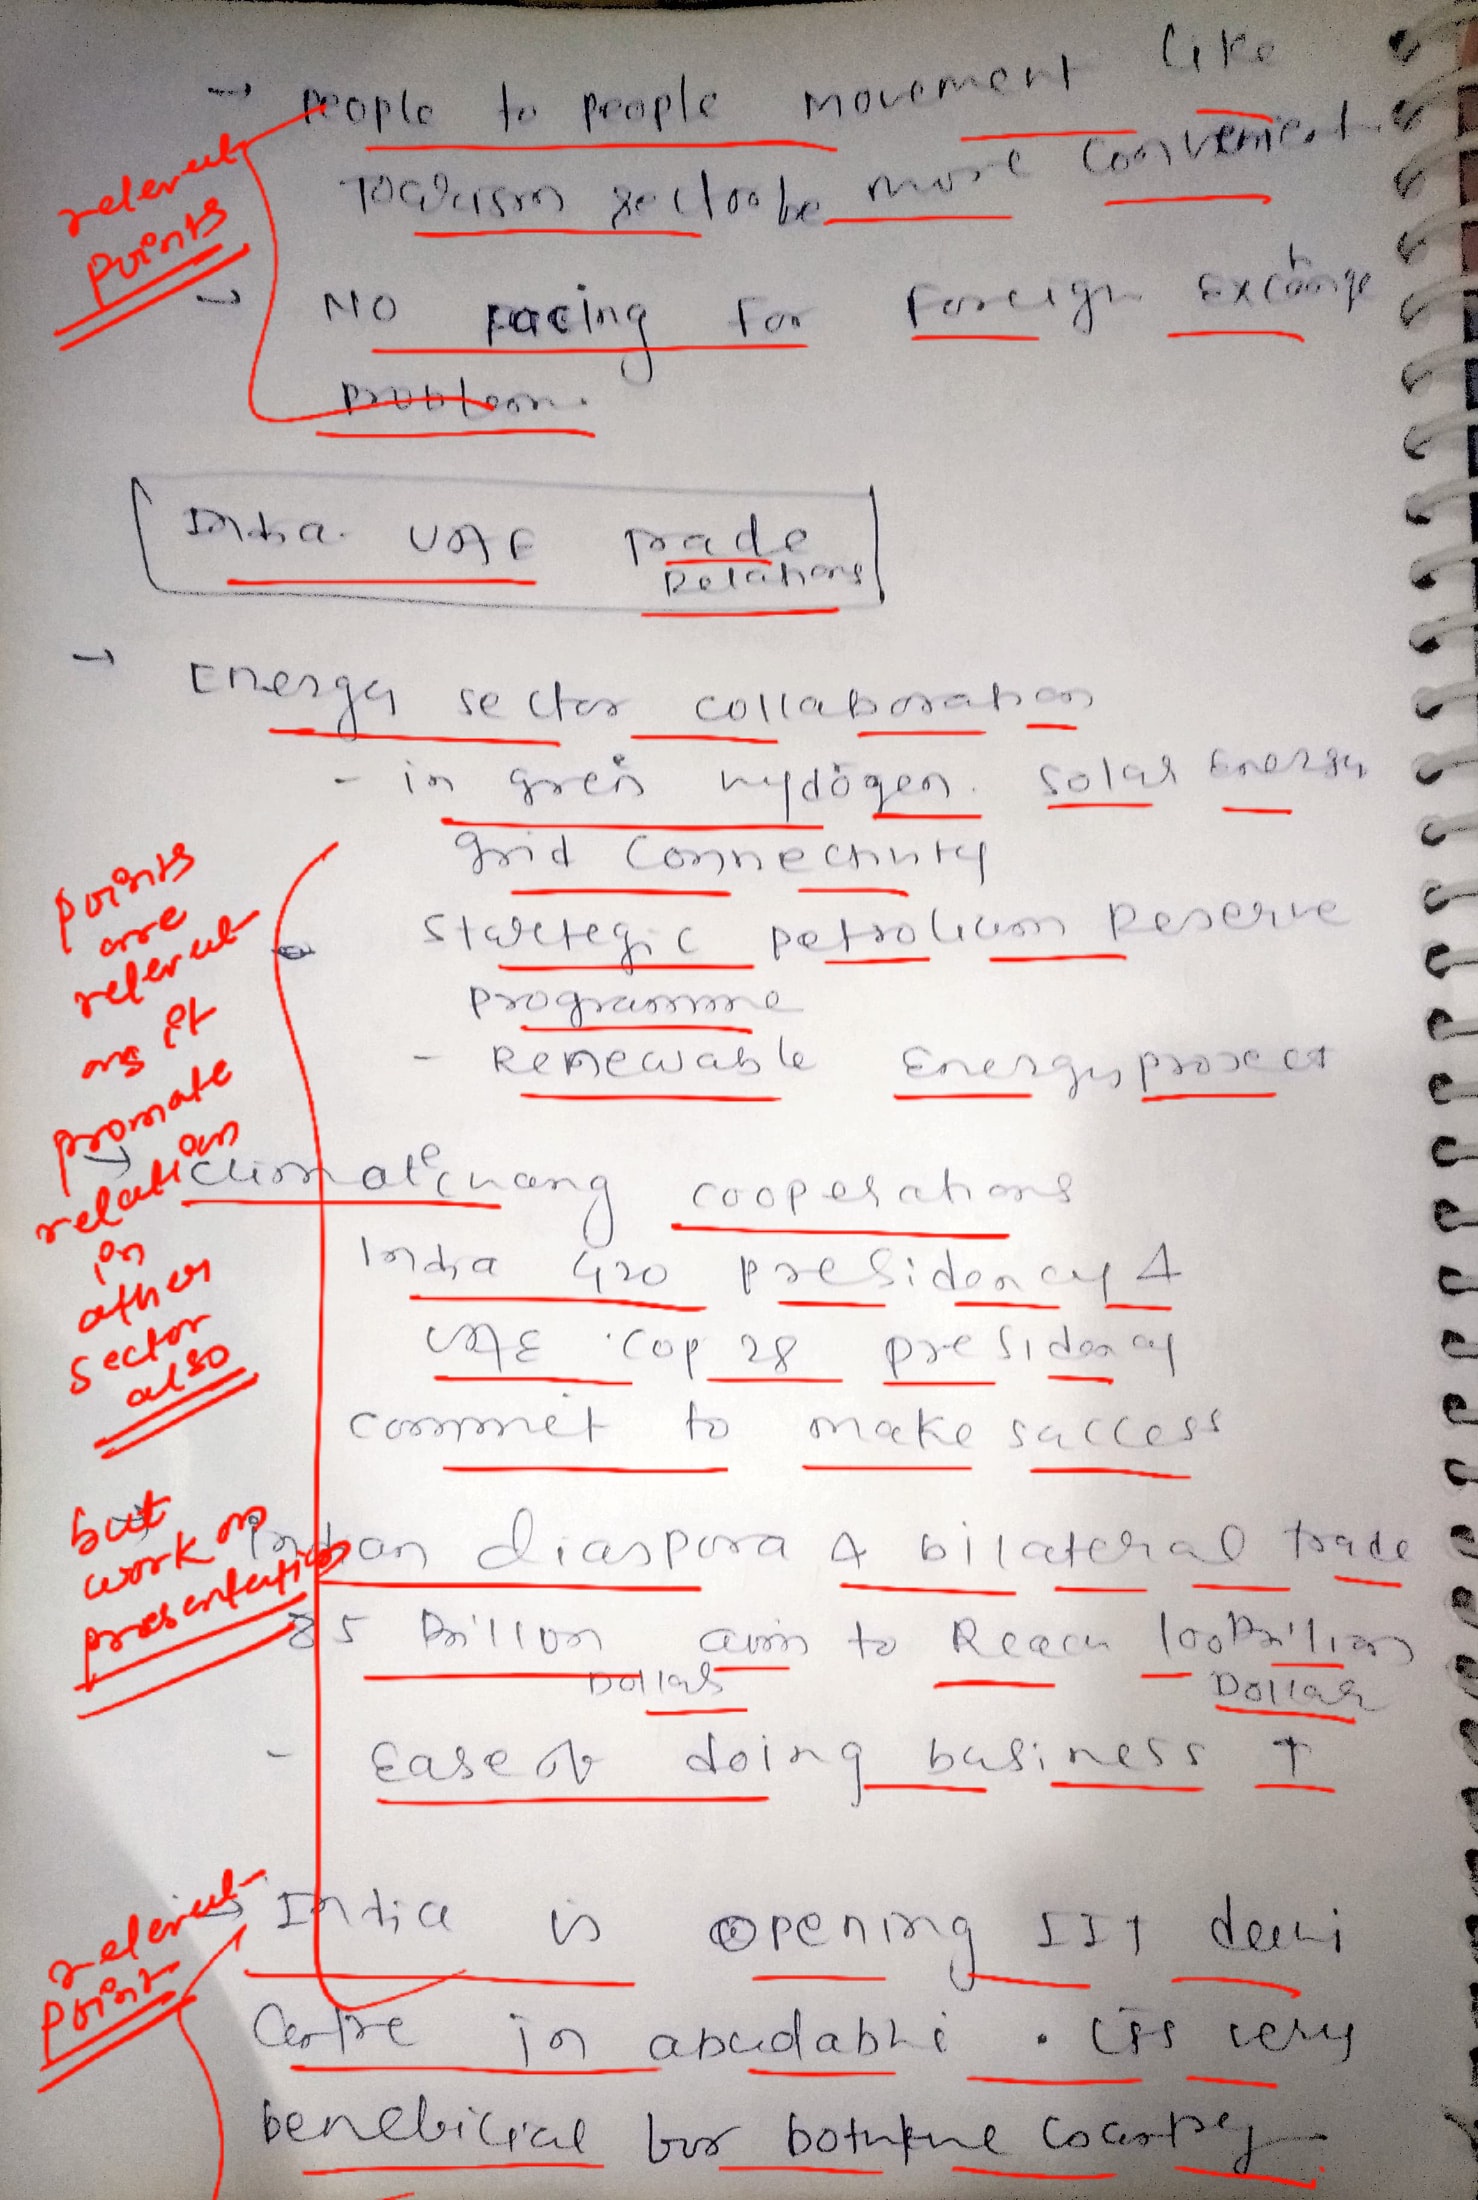 → people to people movement like
Tourism sector be more convenient.
relevent
points
→ No facing for foreign exchange
problem.
India UAE Trade
Relations
→ Energy sector collaboration
- in green hydogen. Solar Energy
grid connectivity
Startegic petrolium Reserve
programme
- Renewable Energy project
points
are
relevent
as it
promote
relation
in
other
sector
also
→ climate chang cooperations
India G20 presidency &
UAE COP 28 presidency
commet to make success
but
work on
presentation
→ Indian diaspora & bilateral trade
85 Billion aim to Reach 100 Billion
Dollar Dollar
- Ease of doing business ↑
relevent
point
→ India is opening IIT delhi
Centre in abudabhi. its very
benebicial for both the Country.